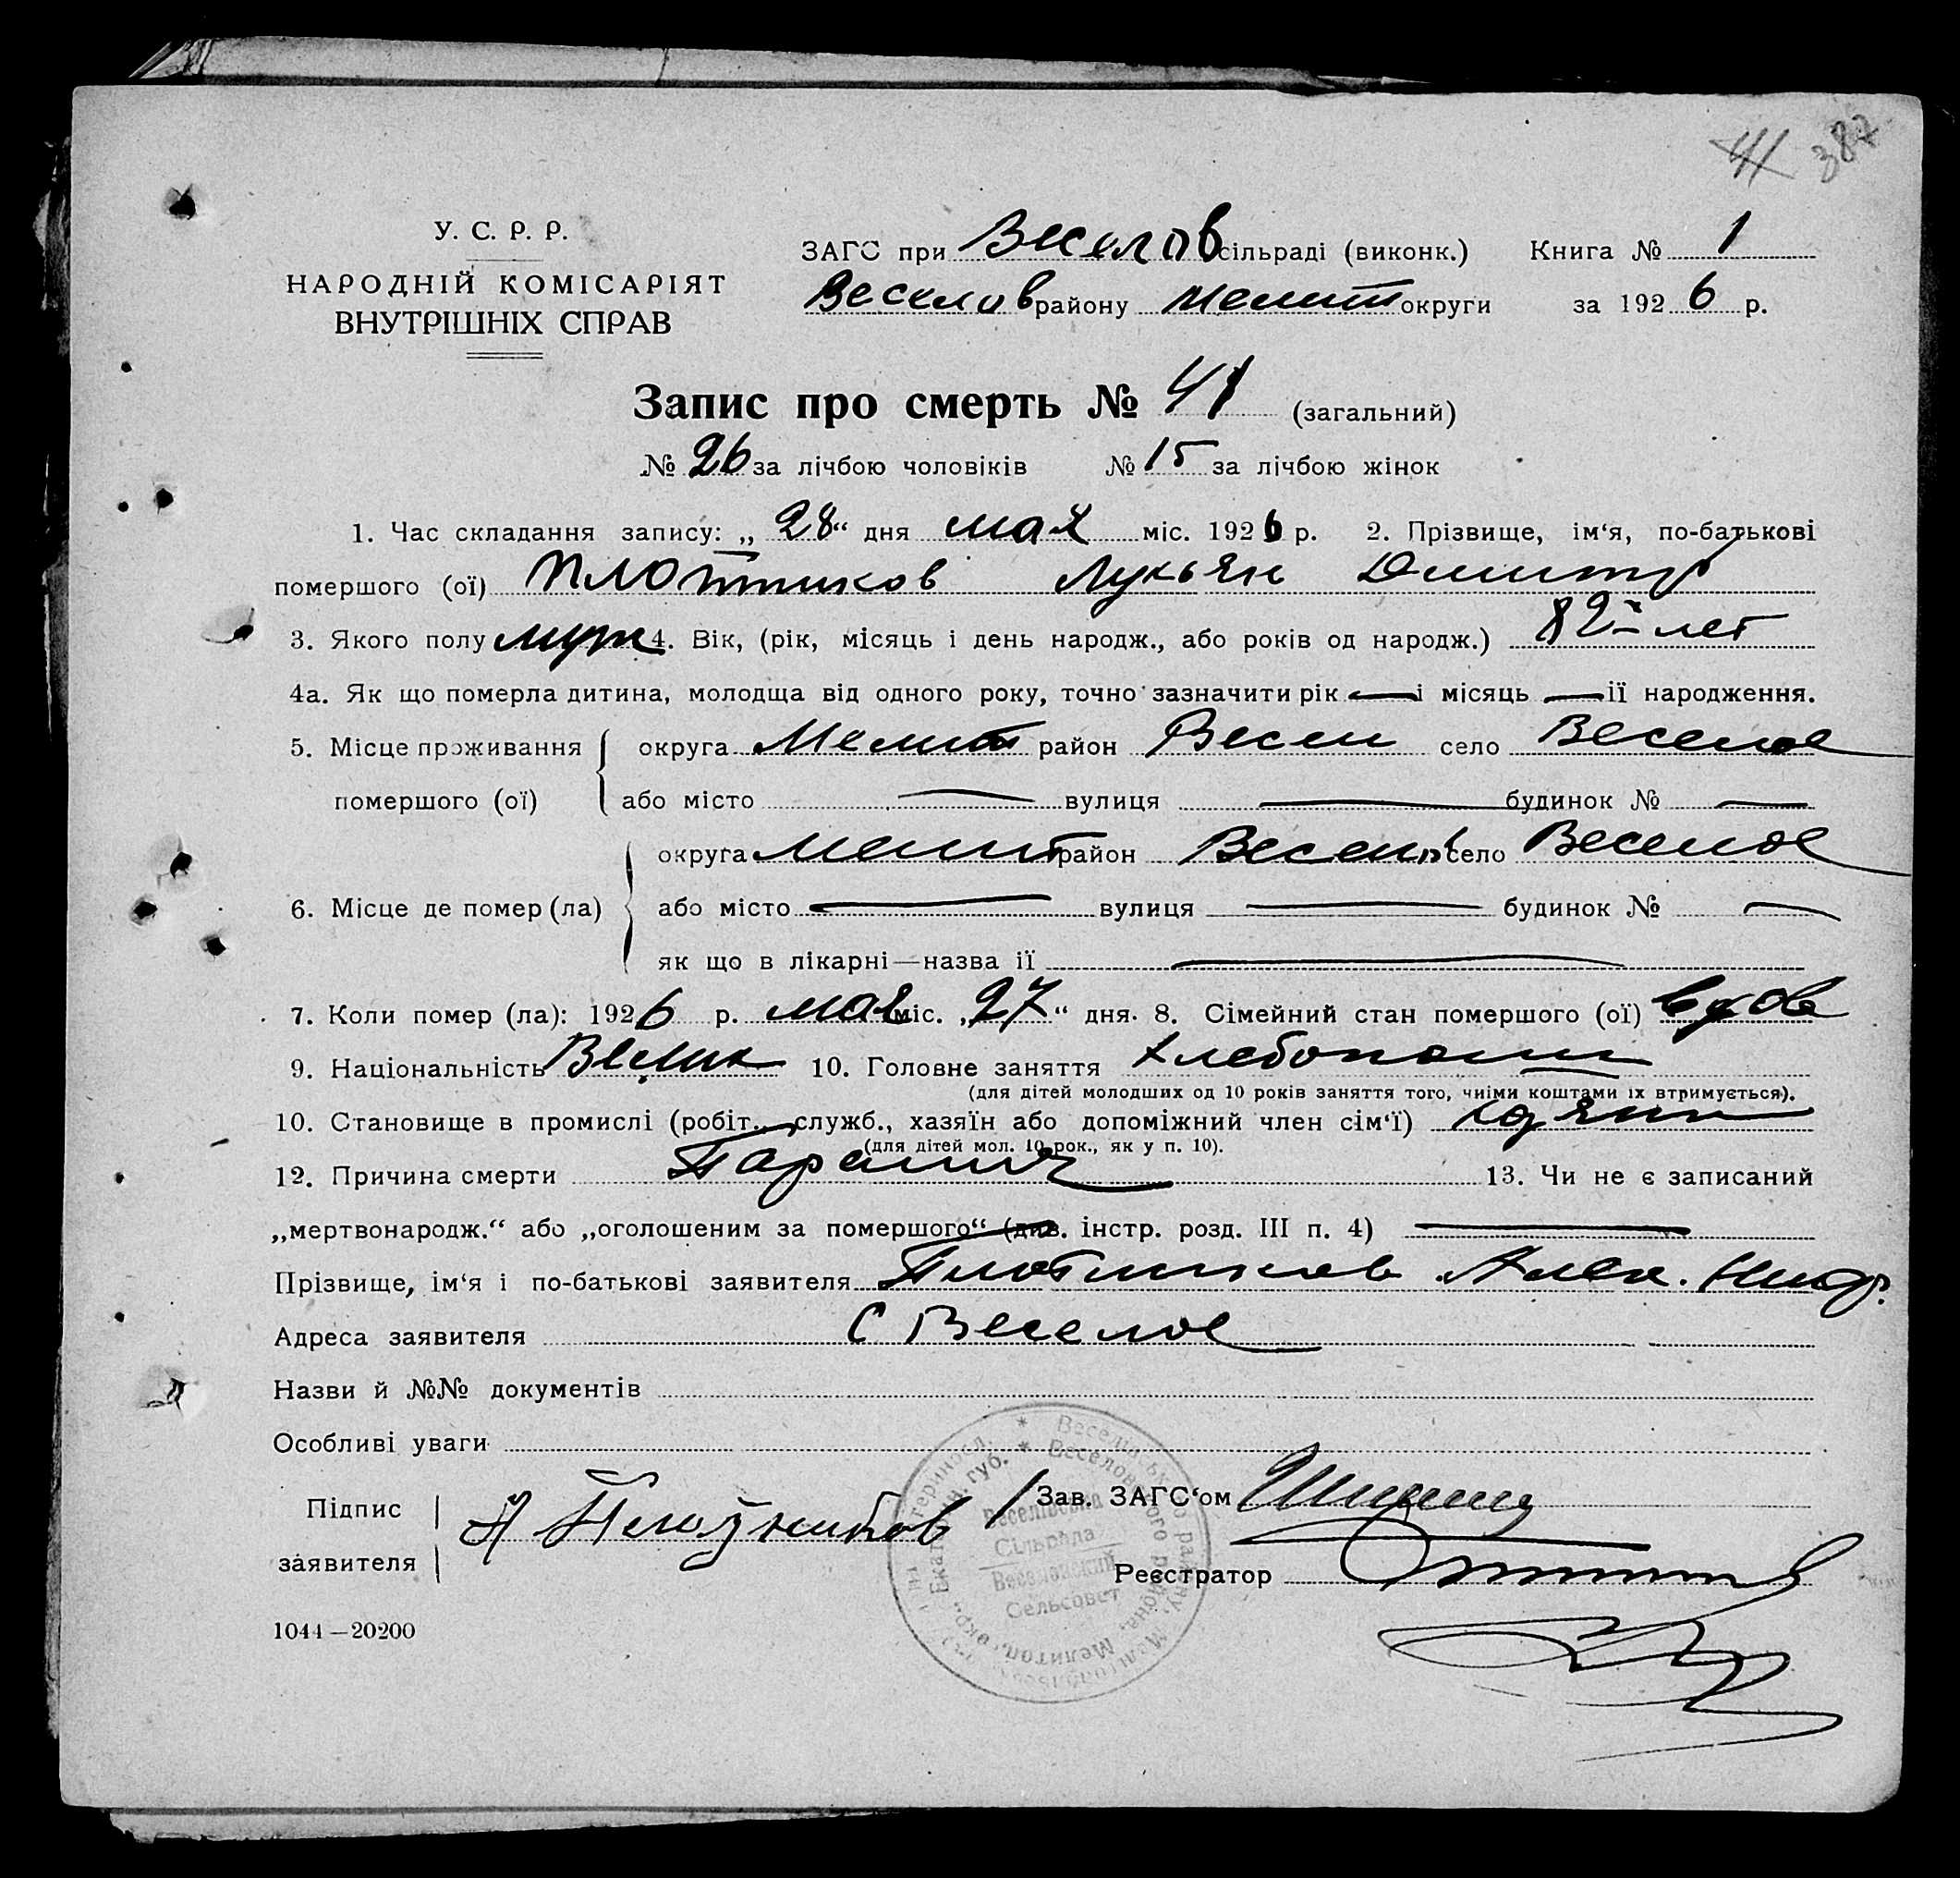 41 387
У. С. Р. Р.
НАРОДНІЙ КОМІСАРІЯТ
ВНУТРІШНІХ СПРАВ
ЗАГС при Веселов сільраді (виконк.) Книга № 1
Веселов району Мелит округи за 1926 р.
Запис про смерть № 41 (загальний)
№ 26 за лічбою чоловіків № 15 за лічбою жінок
1. Час складання запису: „ 28 “ дня мая міс. 1926 р. 2. Прізвище, ім‘я, по-батькові
помершого (ої) Плотников Лукьян Дмитр
3. Якого полу муж 4. Вік, (рік, місяць і день народж., або років од народж.) 82 лет
4а. Як що померла дитина, молодща від одного року, точно зазначити рік — і місяць — її народження.
5. Місце проживання округа Мелит район Весел село Веселое
помершого (ої) або місто — вулиця — будинок № —
округа Мелит район Веселов село Веселое
6. Місце де помер (ла) або місто — вулиця — будинок № —
як що в лікарні—назва ії —
7. Коли помер (ла): 1926 р. мая міс. „27“ дня. 8. Сімейний стан помершого (ої) вдов
9. Національність Велик 10. Головне заняття хлебопаш
(для дітей молодших од 10 років заняття того, чиїми коштами їх втримується).
10. Становище в промислі (робіт., служб., хазяїн або допоміжний член сім‘ї)
(для дітей мол. 10 рок., як у п. 10).
12. Причина смерти Паралич 13. Чи не є записаний
„мертвонародж.“ або „оголошеним за помершого“ (див. інстр. розд. III п. 4) —
Прізвище, ім‘я і по-батькові заявителя Плотников Алек.
Адреса заявителя С Веселое
Назви й №№ документів
Особливі уваги
Підпис А Плотников Зав. ЗАГС‘ом
заявителя Реєстратор
Веселівська
Сільрада
Веселовский
Сельсовет
1044—20200